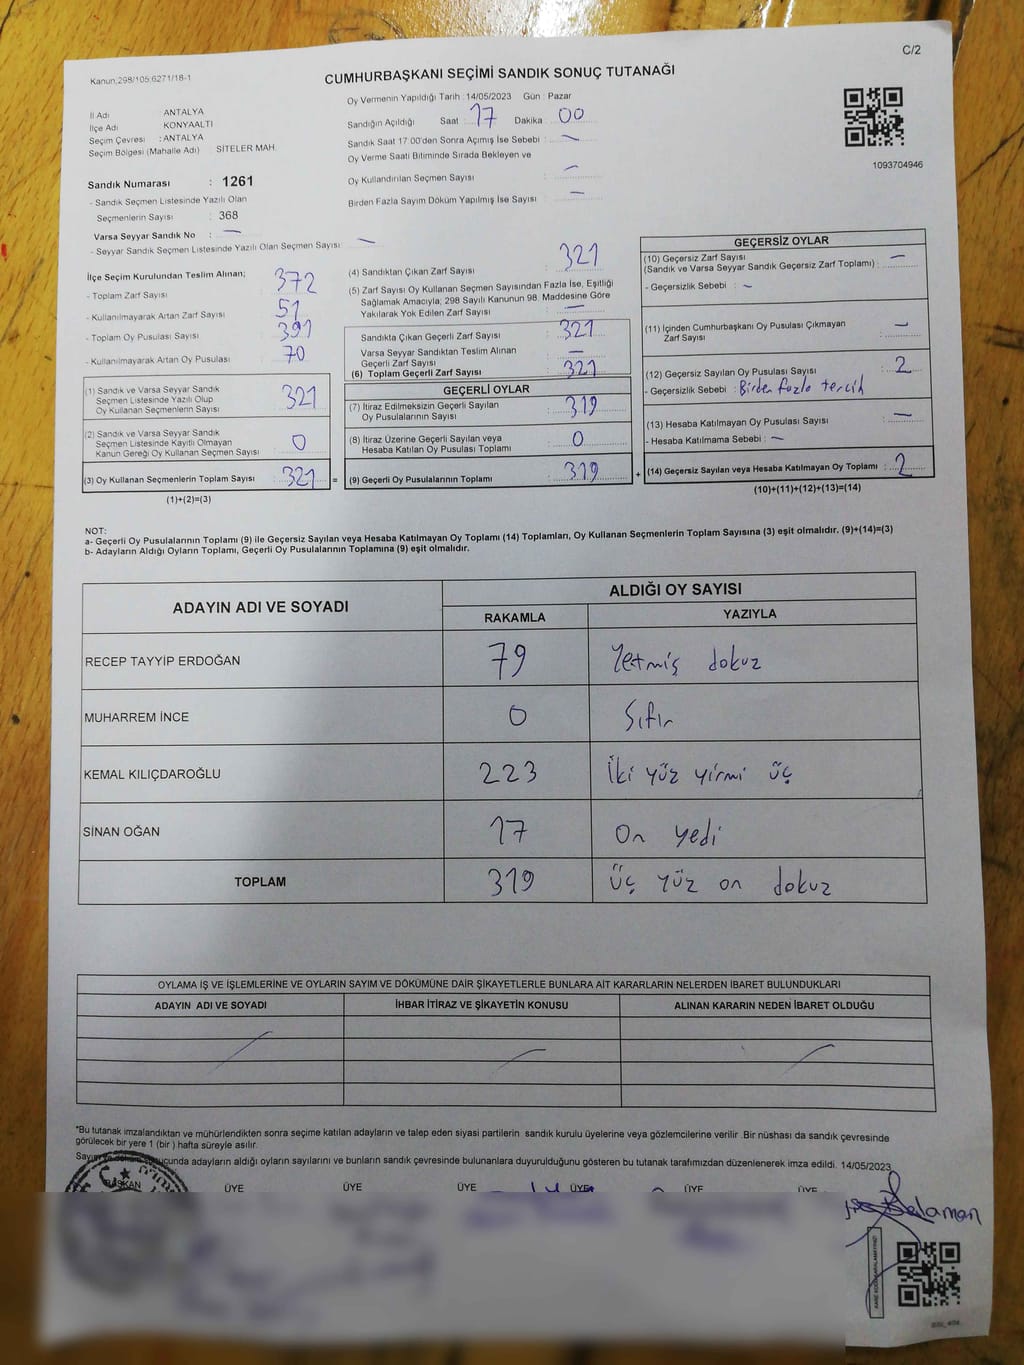 C/2
Kanun:298/105:6271/18-1
CUMHURBAŞKANI SEÇİMİ SANDIK SONUÇ TUTANAĞI
İl Adı ANTALYA
İlçe Adı KONYAALTI
Seçim Çevresi : ANTALYA
Seçim Bölgesi (Mahalle Adı) SİTELER MAH.
Oy Vermenin Yapıldığı Tarih :14/05/2023 Gün : Pazar
Sandığın Açıldığı Saat : 17 Dakika 00
Sandık Saat 17:00'den Sonra Açımış İse Sebebi : —
Oy Verme Saati Bitiminde Sırada Bekleyen ve
Oy Kullandırılan Seçmen Sayısı : —
Birden Fazla Sayım Döküm Yapılmış İse Sayısı : —
1093704946
Sandık Numarası : 1261
- Sandık Seçmen Listesinde Yazılı Olan
Seçmenlerin Sayısı : 368
Varsa Seyyar Sandık No : —
- Seyyar Sandık Seçmen Listesinde Yazılı Olan Seçmen Sayısı : —
İlçe Seçim Kurulundan Teslim Alınan;
- Toplam Zarf Sayısı : 372
- Kullanılmayarak Artan Zarf Sayısı : 51
- Toplam Oy Pusulası Sayısı : 391
- Kullanılmayarak Artan Oy Pusulası : 70
(1) Sandık ve Varsa Seyyar Sandık
Seçmen Listesinde Yazılı Olup
Oy Kullanan Seçmenlerin Sayısı : 321
(2) Sandık ve Varsa Seyyar Sandık
Seçmen Listesinde Kayıtlı Olmayan
Kanun Gereği Oy Kullanan Seçmen Sayısı : 0
(3) Oy Kullanan Seçmenlerin Toplam Sayısı : 321 =
(1)+(2)=(3)
(4) Sandıktan Çıkan Zarf Sayısı : 321
(5) Zarf Sayısı Oy Kullanan Seçmen Sayısından Fazla İse, Eşitliği
Sağlamak Amacıyla; 298 Sayılı Kanunun 98. Maddesine Göre
Yakılarak Yok Edilen Zarf Sayısı : —
Sandıkta Çıkan Geçerli Zarf Sayısı : 321
Varsa Seyyar Sandıktan Teslim Alınan
Geçerli Zarf Sayısı : —
(6) Toplam Geçerli Zarf Sayısı : 321
GEÇERLİ OYLAR
(7) İtiraz Edilmeksizin Geçerli Sayılan
Oy Pusulalarının Sayısı : 319
(8) İtiraz Üzerine Geçerli Sayılan veya
Hesaba Katılan Oy Pusulası Toplamı : 0
(9) Geçerli Oy Pusulalarının Toplamı : 319 +
GEÇERSİZ OYLAR
(10) Geçersiz Zarf Sayısı
(Sandık ve Varsa Seyyar Sandık Geçersiz Zarf Toplamı) : —
- Geçersizlik Sebebi : —
(11) İçinden Cumhurbaşkanı Oy Pusulası Çıkmayan
Zarf Sayısı : —
(12) Geçersiz Sayılan Oy Pusulası Sayısı : 2
- Geçersizlik Sebebi : Birden fazla tercih
(13) Hesaba Katılmayan Oy Pusulası Sayısı : —
- Hesaba Katılmama Sebebi : —
(14) Geçersiz Sayılan veya Hesaba Katılmayan Oy Toplamı : 2
(10)+(11)+(12)+(13)=(14)
NOT:
a- Geçerli Oy Pusulalarının Toplamı (9) ile Geçersiz Sayılan veya Hesaba Katılmayan Oy Toplamı (14) Toplamları, Oy Kullanan Seçmenlerin Toplam Sayısına (3) eşit olmalıdır. (9)+(14)=(3)
b- Adayların Aldığı Oyların Toplamı, Geçerli Oy Pusulalarının Toplamına (9) eşit olmalıdır.
ADAYIN ADI VE SOYADI ALDIĞI OY SAYISI
RAKAMLA YAZIYLA
RECEP TAYYİP ERDOĞAN 79 Yetmiş dokuz
MUHARREM İNCE 0 Sıfır
KEMAL KILIÇDAROĞLU 223 İki yüz yirmi üç
SİNAN OĞAN 17 On yedi
TOPLAM 319 Üç yüz on dokuz
OYLAMA İŞ VE İŞLEMLERİNE VE OYLARIN SAYIM VE DÖKÜMÜNE DAİR ŞİKAYETLERLE BUNLARA AİT KARARLARIN NELERDEN İBARET BULUNDUKLARI
ADAYIN ADI VE SOYADI İHBAR İTİRAZ VE ŞİKAYETİN KONUSU ALINAN KARARIN NEDEN İBARET OLDUĞU
*Bu tutanak imzalandıktan ve mühürlendikten sonra seçime katılan adayların ve talep eden siyasi partilerin sandık kurulu üyelerine veya gözlemcilerine verilir .Bir nüshası da sandık çevresinde
görülecek bir yere 1 (bir ) hafta süreyle asılır.
adayların aldığı oyların sayılarını ve bunların sandık çevresinde bulunanlara duyurulduğunu gösteren bu tutanak tarafımızdan düzenlenerek imza edildi. 14/05/2023
BAŞKAN ÜYE ÜYE ÜYE ÜYE ÜYE ÜYE